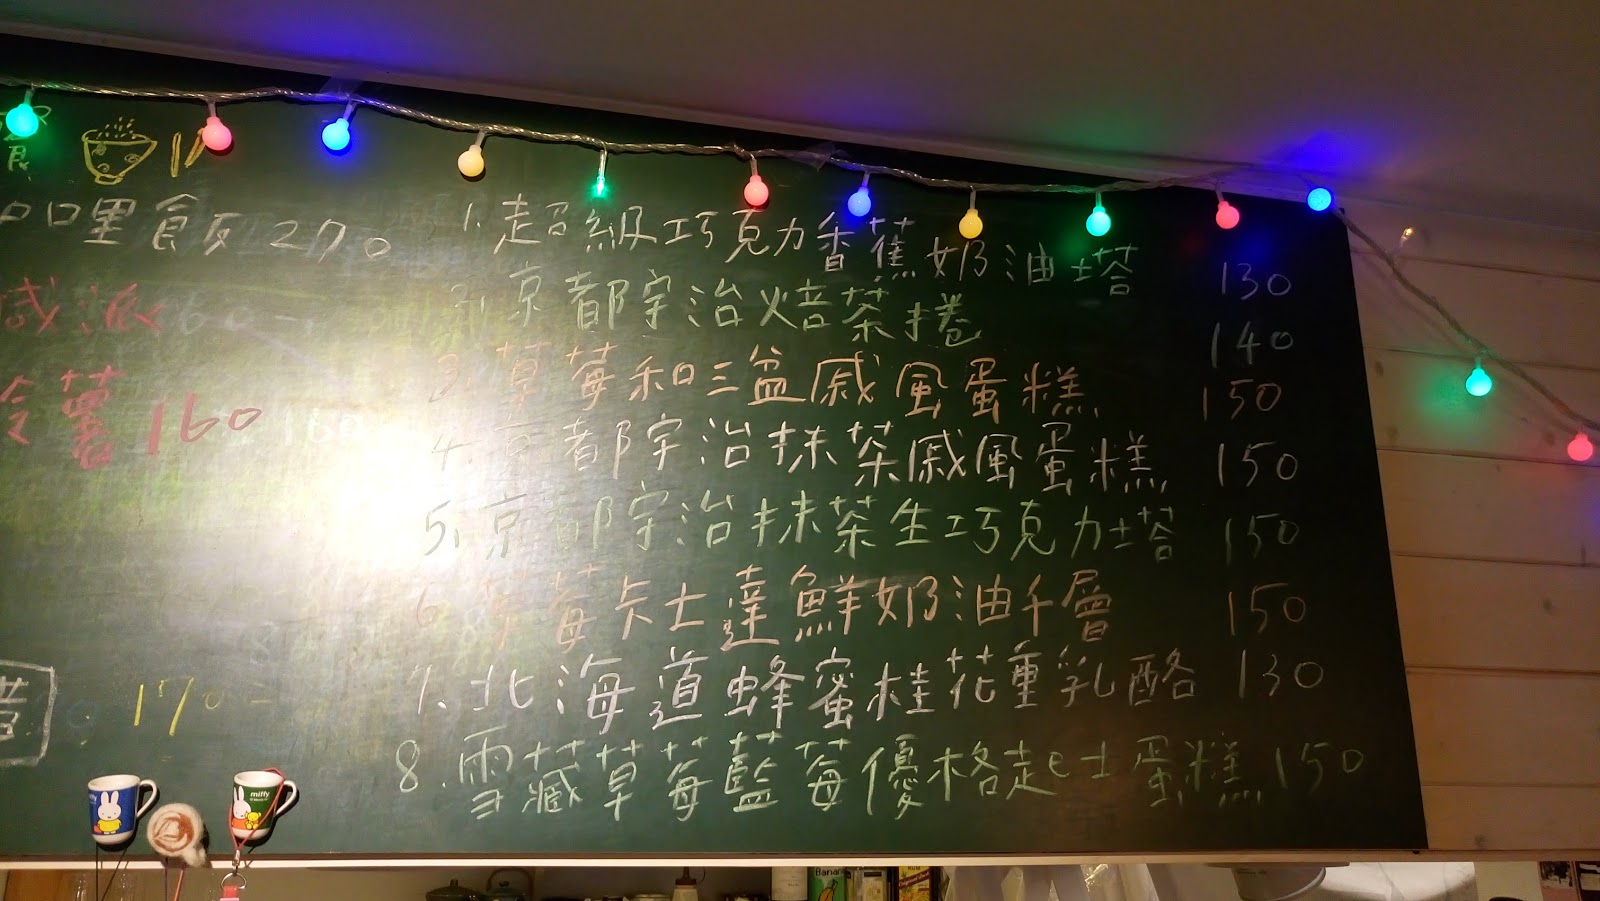 餐
咖哩飯 270
鹹派 160
冷薯 160
170-
1. 超級巧克力香蕉奶油塔 130
2. 京都宇治焙茶捲 140
3. 草莓和三盆戚風蛋糕 150
4. 京都宇治抹茶戚風蛋糕 150
5. 京都宇治抹茶生巧克力塔 150
6. 草莓卡士達鮮奶油千層 150
7. 北海道蜂蜜桂花重乳酪 130
8. 雪藏草莓藍莓優格起士蛋糕 150
miffy
miffy
Banana